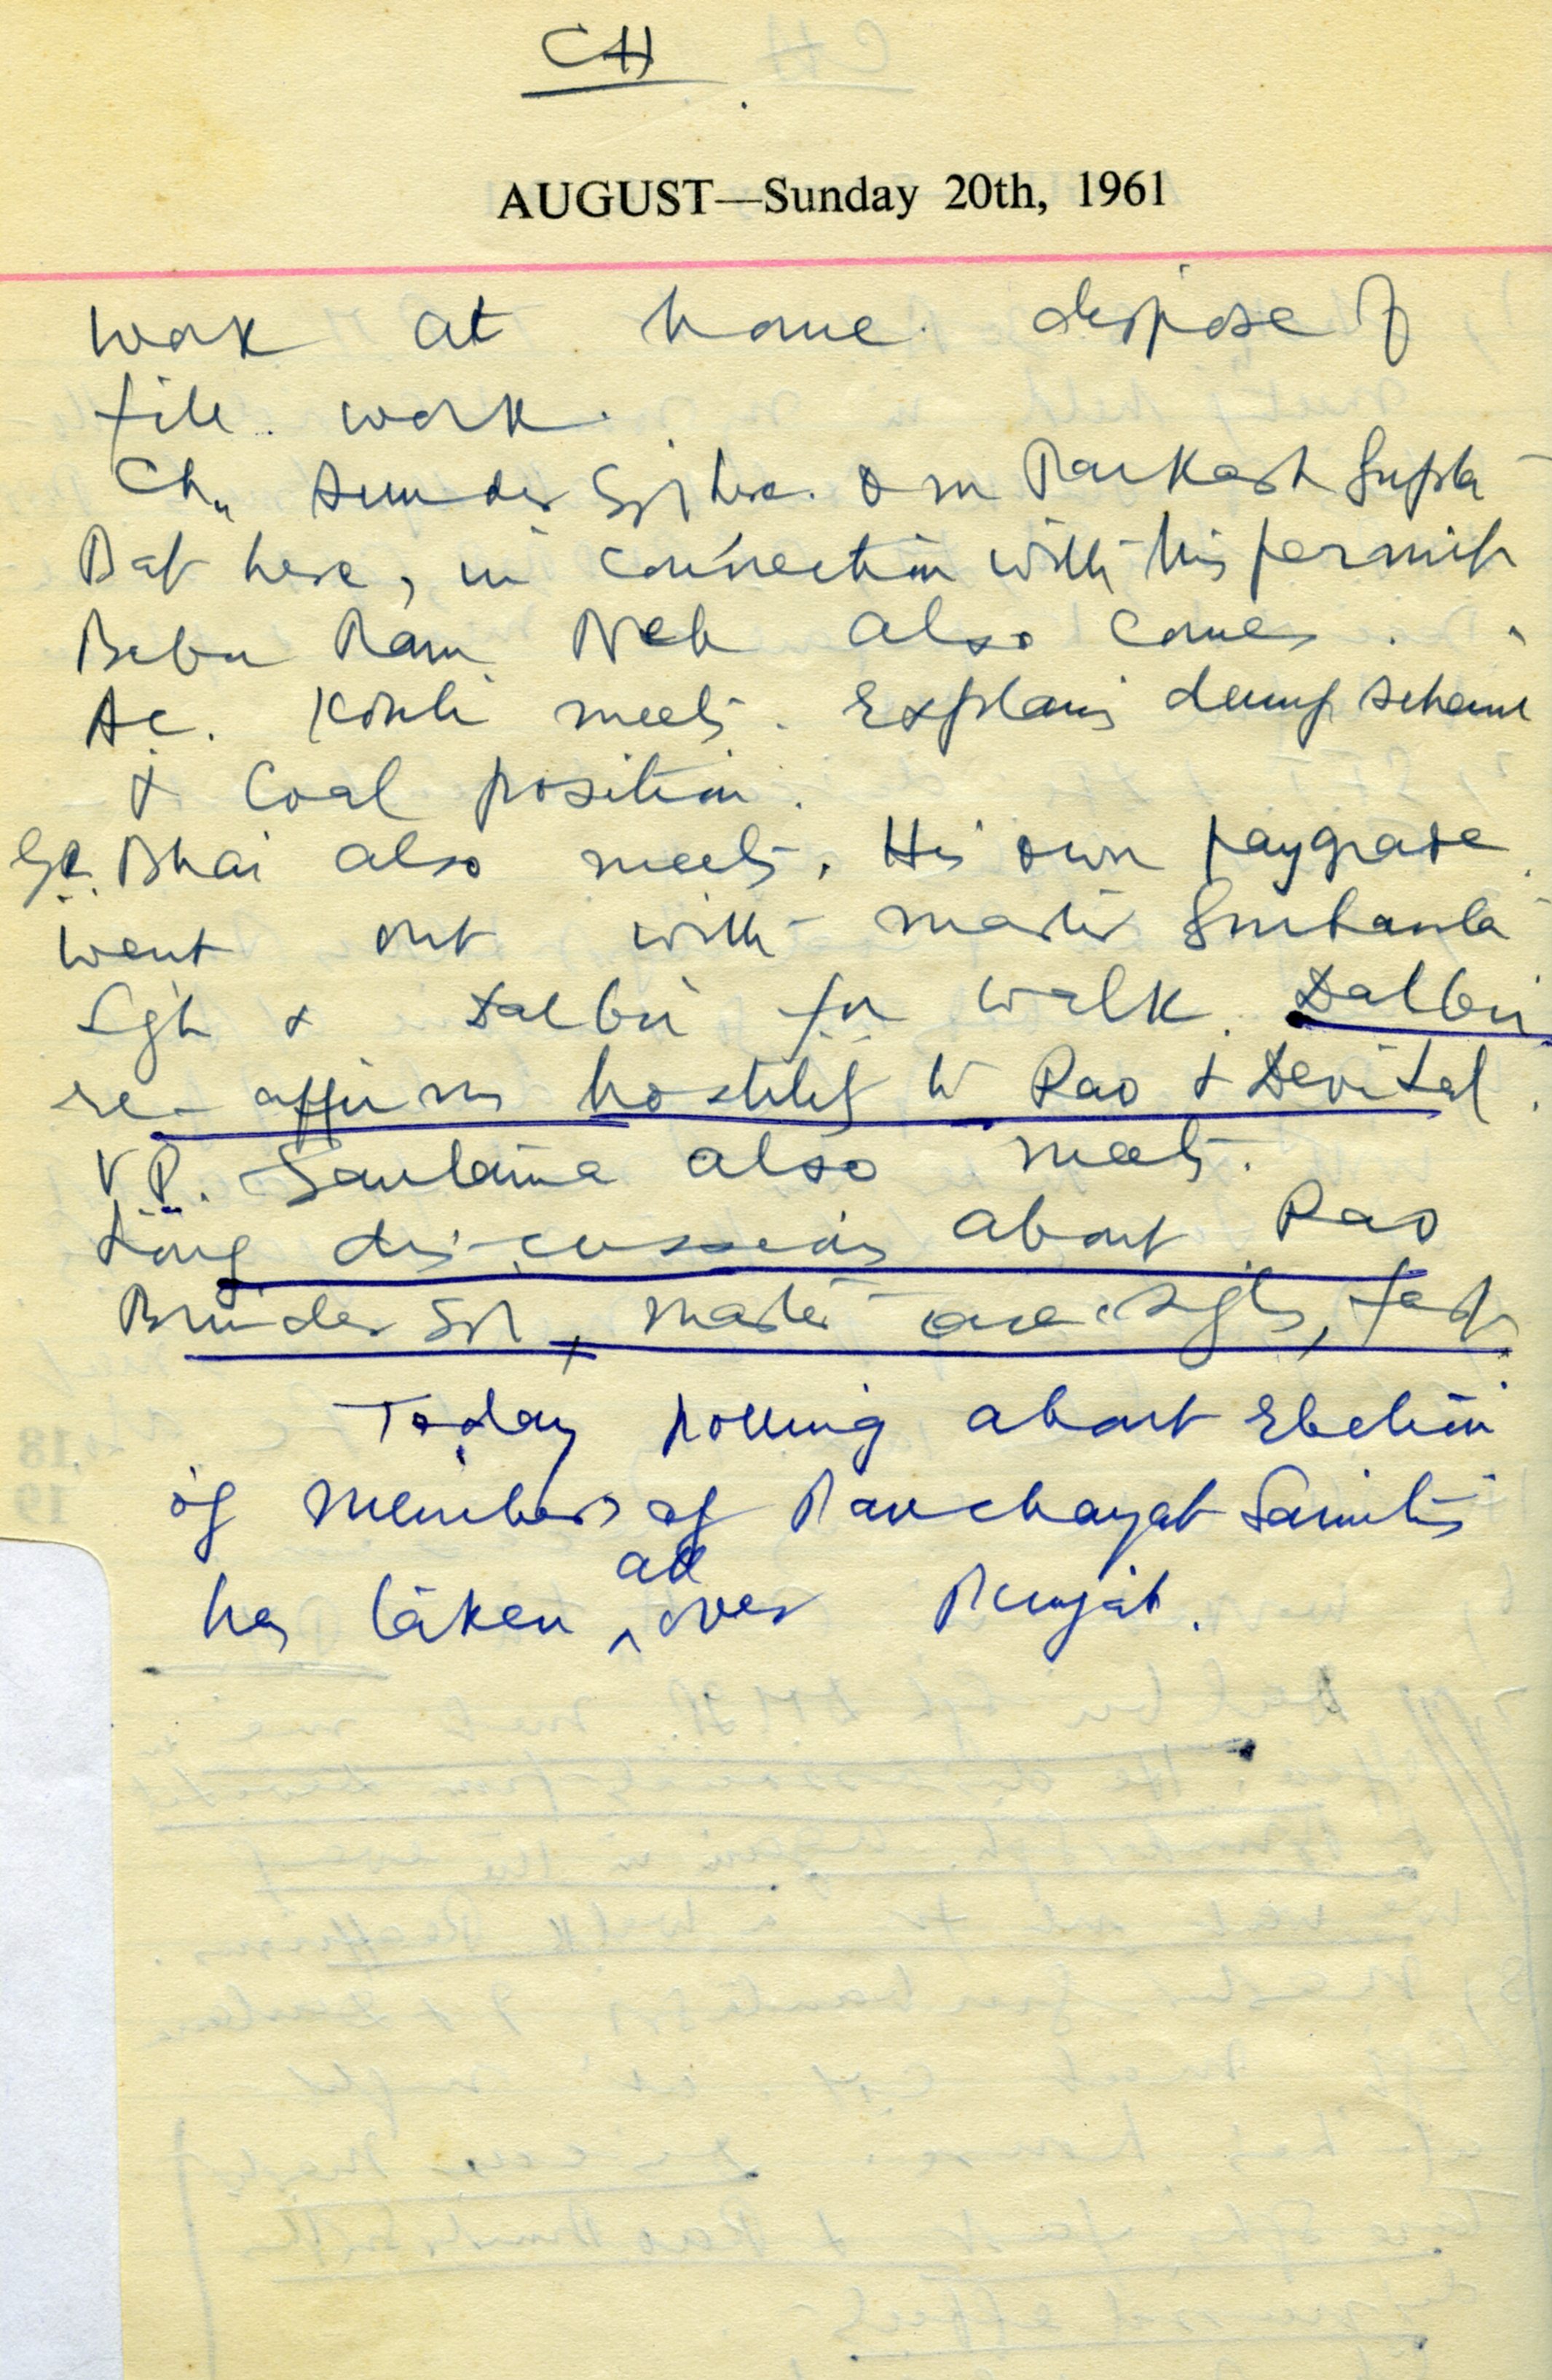 CH
AUGUST—Sunday 20th, 1961
Work at home. dispose of
file. work.
Ch. Sunder Sgh here. Om Parkash Gupta
here, in connection with his permit
Babu Ram also comes.
A.C. Kohli meets. Explains dump scheme
& Coal position.
Bhai also meets. His own paygrade.
Went out with Master Gurbanta
Sgh & Dalbir for walk. Dalbir
re-affirms hostility to Rao & Devi Lal.
V.P. also meets.
Long discussions about Rao
Birinder Sgh, Master Sgh's, fast
Today polling about Election
of Members of Panchayat Samitis
has taken all over Punjab.